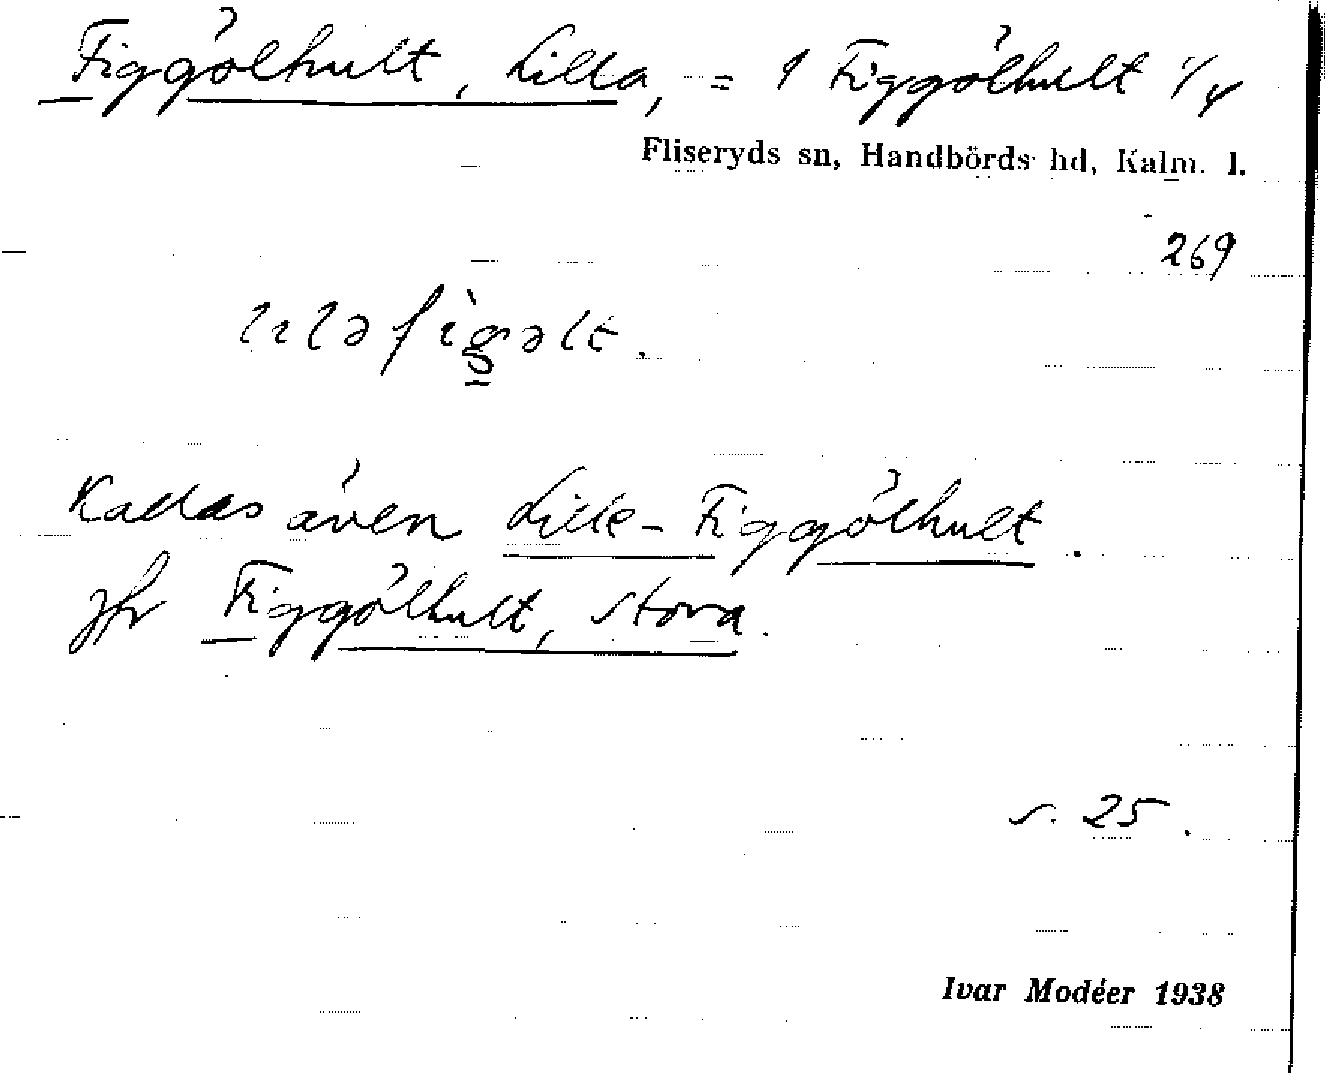 Figgölhult, Lilla, = 1 Figgölhult 1/4
Fliseryds sn, Handbörds hd, Kalm. l.
269
Kallas även Lille-Figgölhult.
Jfr Figgölhult, Stora.
s. 25.
Ivar Modéer 1938